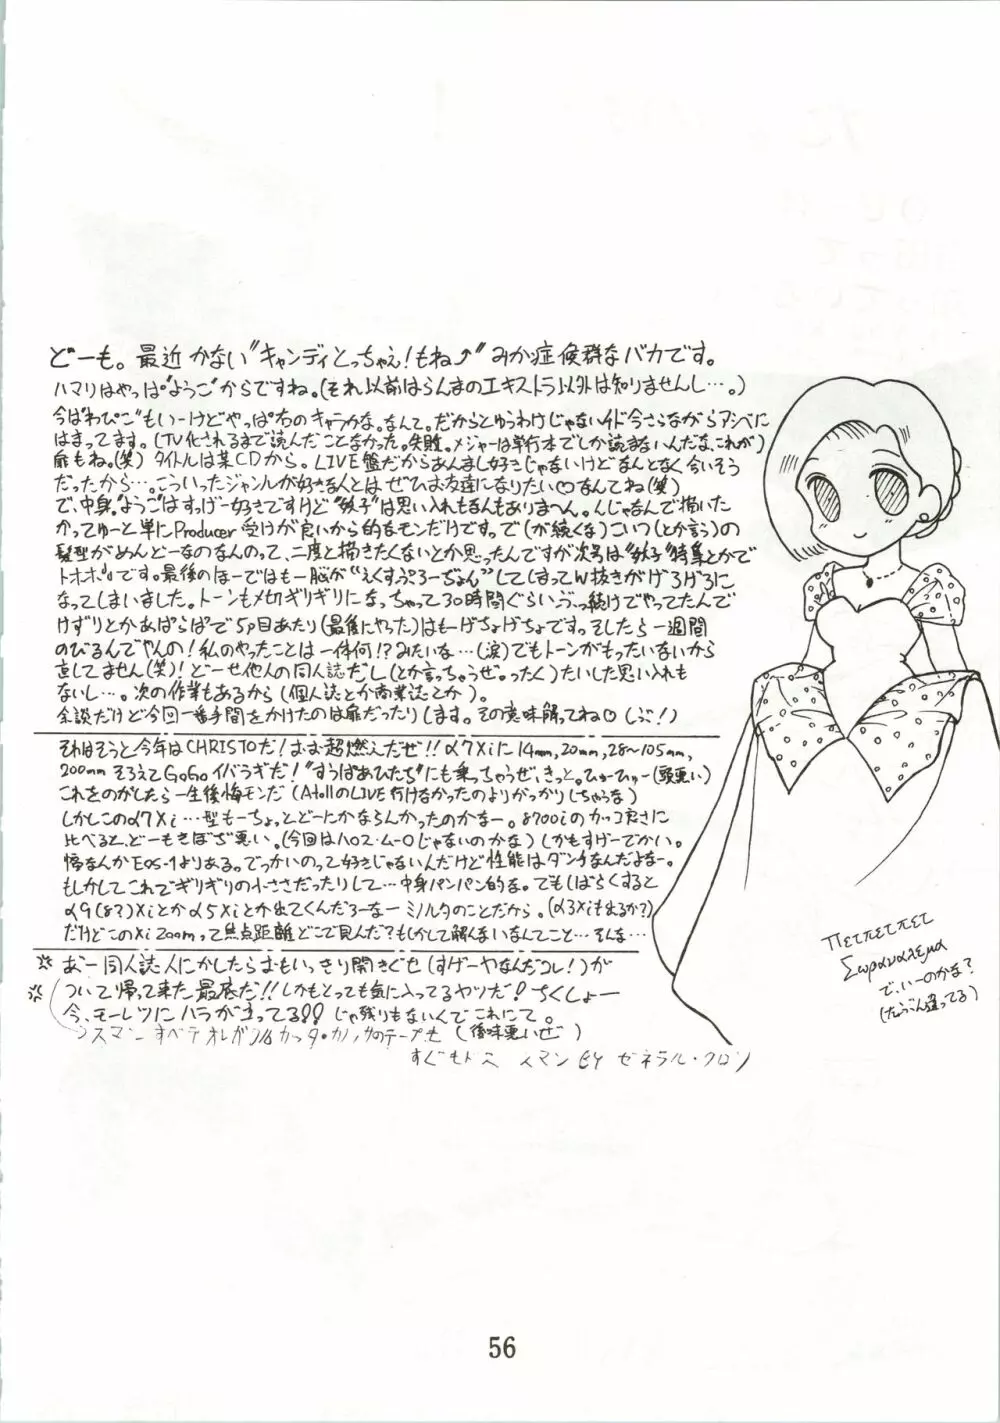 どーも。最近かない"キャンディとっちゃえ!もね⤴"みか症候群なバカです。
ハマリはやっぱ"ようこ"からですね。(それ以前はらんまのエキストラ以外は知りませんし…。)
今は"わぴこ"もいーけどやっぱ右のキャラかな。なんて。だからとゆうわけじゃないけド今さらながらアシベに
はまってます。(TV化されるまで読んだことなかった。失敗。メジャーは単行本でしか読まないんだな、これが)
扉もね。(笑) タイトルは某CDから。LIVE盤だからあんまし好きじゃないけどなんとなく合いそう
だったから…。こういったジャンルが好きな人とはぜひお友達になりたい♡なんてね(笑)
で、中身。"ようこ"はすっげー好きですけど"妖子"は思い入れもなんもありまへん。んじゃなんで描いた
かってゆーと単にProducer受けが良いから的なモンだけですっで(が続くな)こいつ(とか言う)の
髪型がめんどーなのなんのって、二度と描きたくないとか思ったんですが次号は"妖子"特集とかで
トオホホです。最後のほーではもー脳が"えくすぷろーぢょん"してしまってW抜きがげろげろに
なってしまいました。トーンもメ切ギリギリになっちゃって30時間ぐらいぶっ続けでやってたんで
けずりとかあぱらぱで5p目あたり(最後にやった)はもーげちょげちょですっそしたら一週間
のびるんでやんの!私のやったことは一体何!?みたいな…(涙)でもトーンがもったいないから
直してません(笑)!どーせ他人の同人誌だし(とか言っちゃうぜ。ったく)たいした思い入れも
ないし…。次の作業もあるから(個人誌とか商業誌とか)。
余談だけど今回一番手間をかけたのは扉だったりします。その意味解ってね♡(ぶ!)
それはそうと今年はCHRISTOだ!おお超燃えだぜ!!α7Xiに14mm,20mm,28~105mm,
200mmそろえてGoGoイバラギだ!"すうぱあひたち"にも乗っちゃうぜ、きっと。ひゅーひゅー(頭悪い)
これをのがしたら一生後悔モンだ(AtollのLIVE行けなかったのよりがっかり(ちゃうな)
しかしこのα7Xi…型もーちょっとどーにかならんかったのかなー。8700iのカッコ良さに
比べると、どーもきぼぢ悪い。(今回はハロス・ムーロじゃないのかな)しかもすげーでかい。
幅なんかEOS-1よりある。でっかいのって好きじゃないんだけど性能はダンチなんだよなー。
もしかしてこれでギリギリの小ささだったりして…中身パンパン的な。でもしばらくすると
α9(8?)Xiとかα5Xiとか出てくんだろーなーミノルタのことだから。(α3Xiも出るか?)
だけどこのXi Zoomって焦点距離どこで見んだ?もしかして解んないなんてこと…そんな…
あー同人誌人にかしたらおもいっきり開きぐせ(すげーやなんだコレ!)が
ついて帰って来た最底だ!!しかもとっても気に入ってるヤツだ!ちくしょー
今、モーレツにハラが立ってる!!じゃ残りもないんでこれにて。
スマン すべテオレガ (後味悪いぜ)
すぐもドス スマン BY ゼネラル・クロン
Πετπετπετ
Σωραναλεμα
で、いーのかな?
(たぶん違ってる)
56